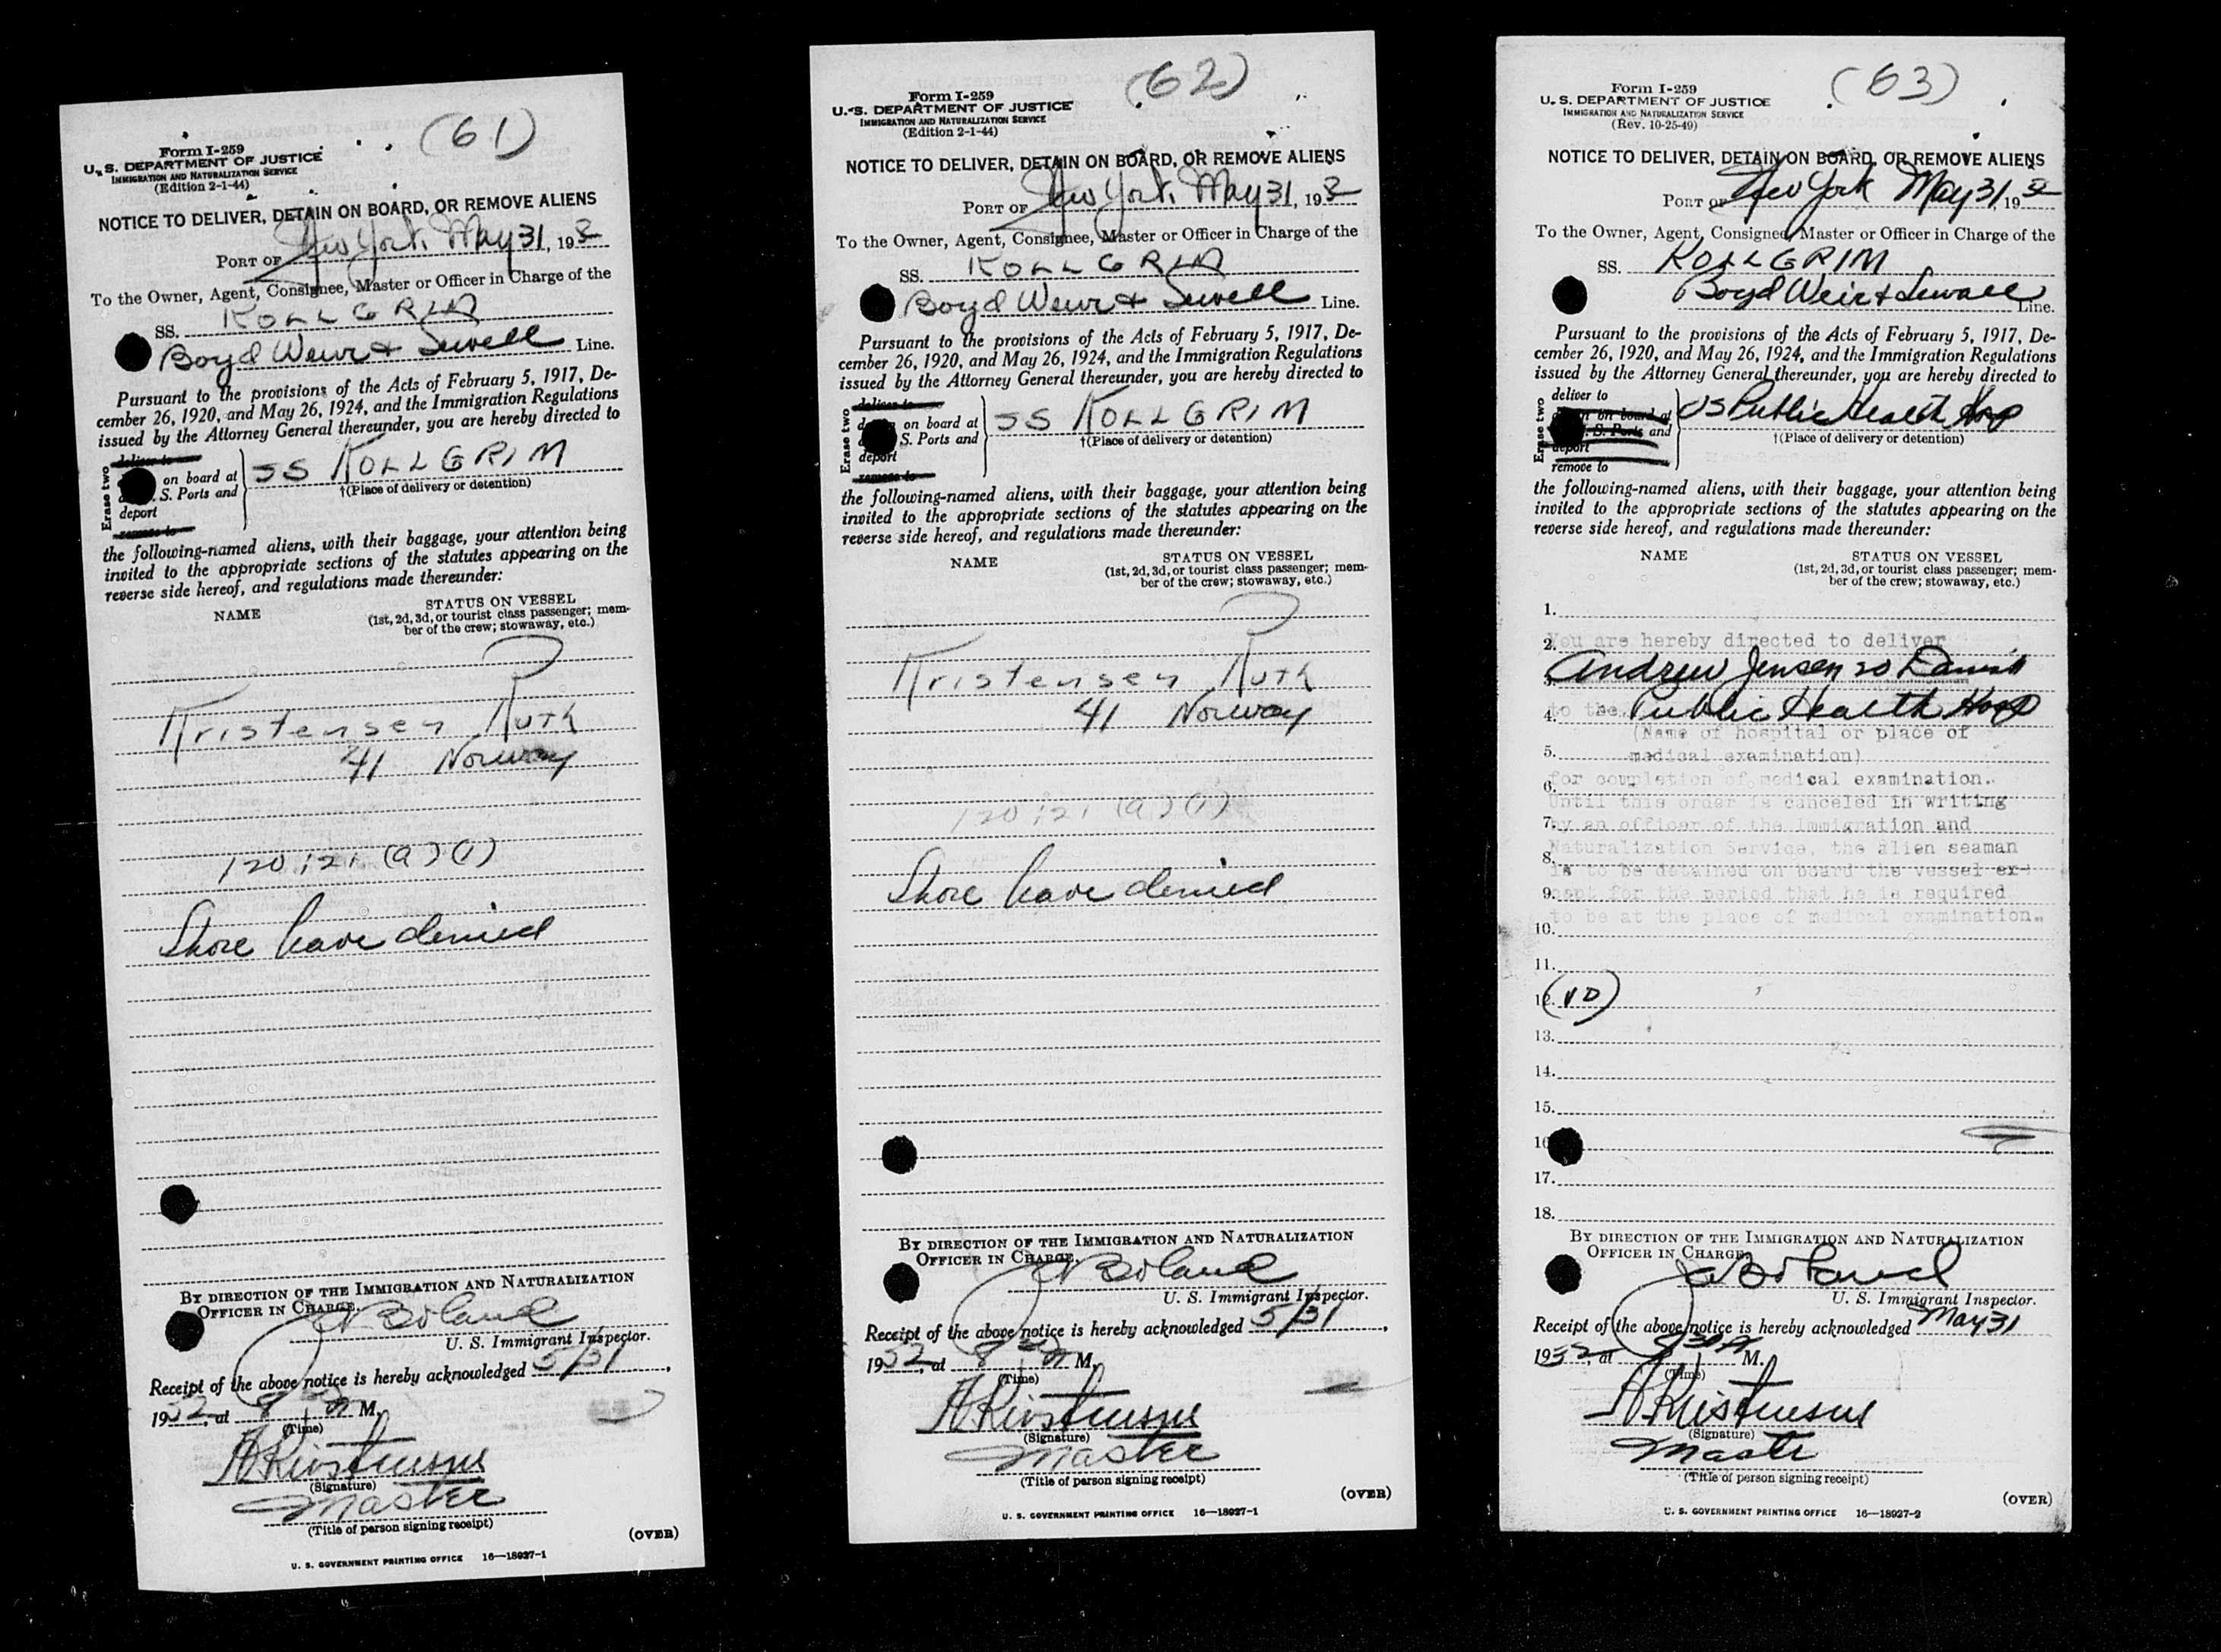 (61)
Form I-259
U. S. DEPARTMENT OF JUSTICE
IMMIGRATION AND NATURALIZATION SERVICE
(Edition 2-1-44)
NOTICE TO DELIVER, DETAIN ON BOARD, OR REMOVE ALIENS
PORT OF New York, May 31, 19
To the Owner, Agent, Consignee, Master or Officer in Charge of the
SS. KOLLGRIM
Boyd Weir + Sewell Line.
Pursuant to the provisions of the Acts of February 5, 1917, De-
cember 26, 1920, and May 26, 1924, and the Immigration Regulations
issued by the Attorney General thereunder, you are hereby directed to
Erase two
deliver to
on board at
S. Ports and
deport
remove to
SS KOLLGRIM
†(Place of delivery or detention)
the following-named aliens, with their baggage, your attention being
invited to the appropriate sections of the statutes appearing on the
reverse side hereof, and regulations made thereunder:
NAME
STATUS ON VESSEL
(1st, 2d, 3d, or tourist class passenger; mem-
ber of the crew; stowaway, etc.)
Kristensen Ruth
41 Norway
120.21 (a) (1)
Shore leave denied
BY DIRECTION OF THE IMMIGRATION AND NATURALIZATION
OFFICER IN CHARGE.
Boland
U. S. Immigrant Inspector.
Receipt of the above notice is hereby acknowledged 5/31,
1952, at M.
(Time)
A Kristensen
(Signature)
Master
(Title of person signing receipt)
(OVER)
U. S. GOVERNMENT PRINTING OFFICE 16—18927-1
(62)
Form I-259
U. S. DEPARTMENT OF JUSTICE
IMMIGRATION AND NATURALIZATION SERVICE
(Edition 2-1-44)
NOTICE TO DELIVER, DETAIN ON BOARD, OR REMOVE ALIENS
PORT OF New York, May 31, 19
To the Owner, Agent, Consignee, Master or Officer in Charge of the
SS. KOLLGRIM
Boyd Weir + Sewell Line.
Pursuant to the provisions of the Acts of February 5, 1917, De-
cember 26, 1920, and May 26, 1924, and the Immigration Regulations
issued by the Attorney General thereunder, you are hereby directed to
Erase two
deliver to
on board at
S. Ports and
deport
remove to
SS KOLLGRIM
†(Place of delivery or detention)
the following-named aliens, with their baggage, your attention being
invited to the appropriate sections of the statutes appearing on the
reverse side hereof, and regulations made thereunder:
NAME
STATUS ON VESSEL
(1st, 2d, 3d, or tourist class passenger; mem-
ber of the crew; stowaway, etc.)
Kristensen Ruth
41 Norway
120.21 (a) (1)
Shore leave denied
BY DIRECTION OF THE IMMIGRATION AND NATURALIZATION
OFFICER IN CHARGE.
Boland
U. S. Immigrant Inspector.
Receipt of the above notice is hereby acknowledged 5/31,
1952, at M.
(Time)
A Kristensen
(Signature)
Master
(Title of person signing receipt)
(OVER)
U. S. GOVERNMENT PRINTING OFFICE 16—18927-1
(63)
Form I-259
U. S. DEPARTMENT OF JUSTICE
IMMIGRATION AND NATURALIZATION SERVICE
(Rev. 10-25-49)
NOTICE TO DELIVER, DETAIN ON BOARD, OR REMOVE ALIENS
PORT OF New York May 31, 1952
To the Owner, Agent, Consignee, Master or Officer in Charge of the
SS. KOLLGRIM
Boyd Weir + Sewall Line.
Pursuant to the provisions of the Acts of February 5, 1917, De-
cember 26, 1920, and May 26, 1924, and the Immigration Regulations
issued by the Attorney General thereunder, you are hereby directed to
Erase two
deliver to
on board at
S. Ports and
deport
remove to
US Public Health Hosp
†(Place of delivery or detention)
the following-named aliens, with their baggage, your attention being
invited to the appropriate sections of the statutes appearing on the
reverse side hereof, and regulations made thereunder:
NAME
STATUS ON VESSEL
(1st, 2d, 3d, or tourist class passenger; mem-
ber of the crew; stowaway, etc.)
1.
2. You are hereby directed to deliver
3. Andrew Jensen 20 Danish
4. to the Public Health Hosp
(Name of hospital or place of
5. medical examination)
6. for completion of medical examination.
Until this order is canceled in writing
7. by an officer of the Immigration and
8. Naturalization Service, the alien seaman
is to be detained on board the vessel ex-
9. cept for the period that he is required
to be at the place of medical examination.
10.
11.
12. (VD)
13.
14.
15.
16
17.
18.
BY DIRECTION OF THE IMMIGRATION AND NATURALIZATION
OFFICER IN CHARGE.
Boland
U. S. Immigrant Inspector.
Receipt of the above notice is hereby acknowledged May 31
1952, at 830 A M.
(Time)
A Kristensen
(Signature)
Master
(Title of person signing receipt)
(OVER)
U. S. GOVERNMENT PRINTING OFFICE 16—18927-2